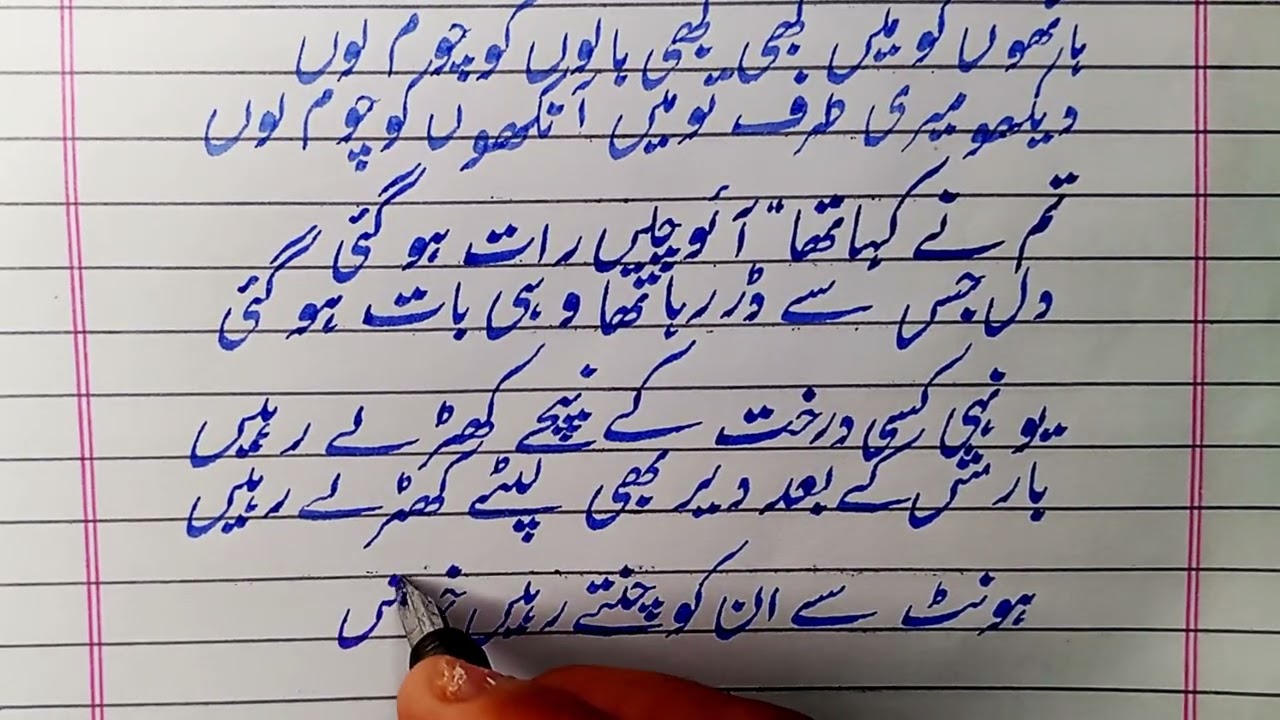 ہاتھوں کو میں کبھی کبھی بالوں کو چوم لوں
دیکھو میری طرف تو میں آنکھوں کو چوم لوں
تم نے کہا تھا " آئو چلیں رات ہو گئی
دل جس سے ڈر رہا تھا وہی بات ہو گئی
یونہی کسی درخت کے نیچے کھڑے رہیں
بارش کے بعد دیر بھی لپٹے کھڑے رہیں
ہونٹ سے ان کو چنتے رہیں